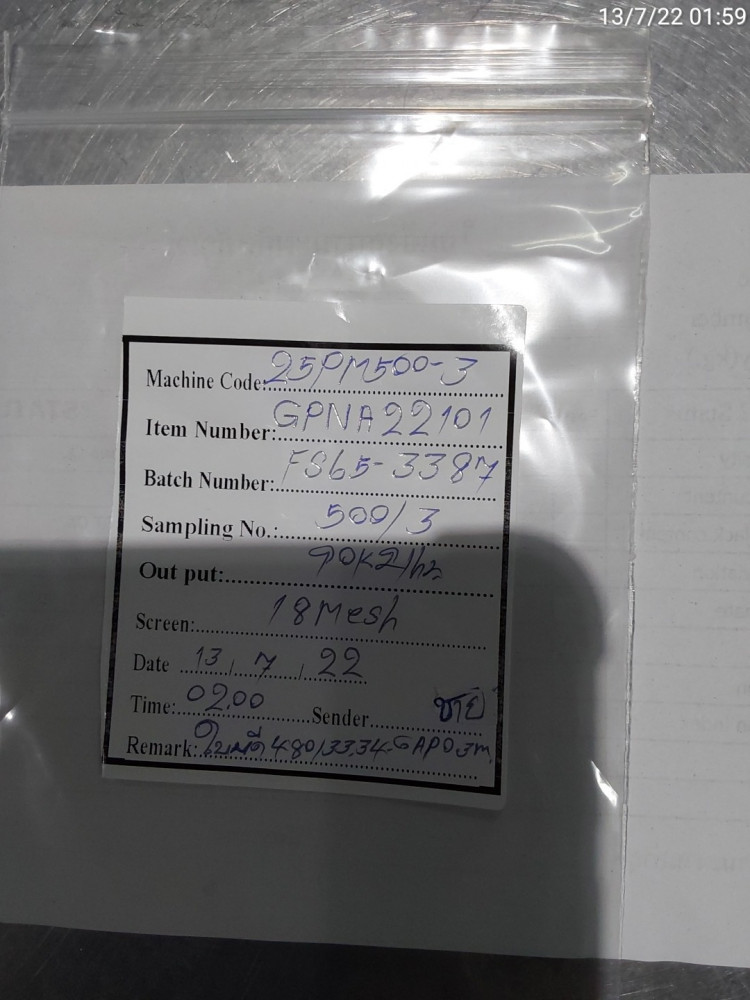 13/7/22 01:59
Machine Code: 25PM500-3
Item Number: GPNA22101
Batch Number: FS65-3387
Sampling No.: 500/3
Out put: 90Kg/hr
Screen: 18Mesh
Date 13/7/22
Time: 02.00 Sender ชาย
Remark: ใบมีด 480/3334-GAP0.3m